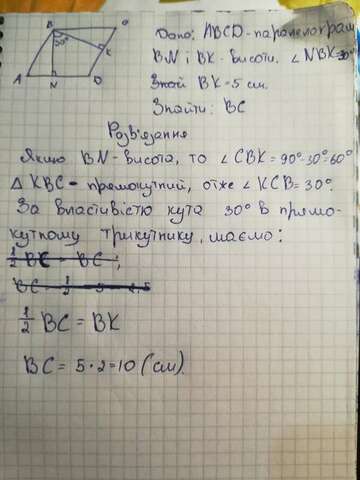 B
C
30°
K
A
N
D
Дано: ABCD-паралелограм
BN і BK-висоти. ∠NBK=30°
Знай BK=5 см.
Знайти: BC
Розв'язання
Якщо BN-висота, то ∠CBK=90°-30°=60°
△ KBC-прямокутний, отже ∠KCB=30°.
За властивістю кута 30° в прямо-
кутному трикутнику, маємо:
1/2 BC = BC;
BC = 1/2
1/2 BC = BK
BC = 5·2=10 (см)